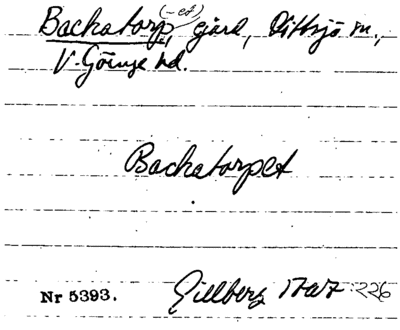 Backatorp(-et), gård, Vittsjö sn.,
V. Göinge hd.
Backatorpet
Nr 5393. Gillberg 1767: 226